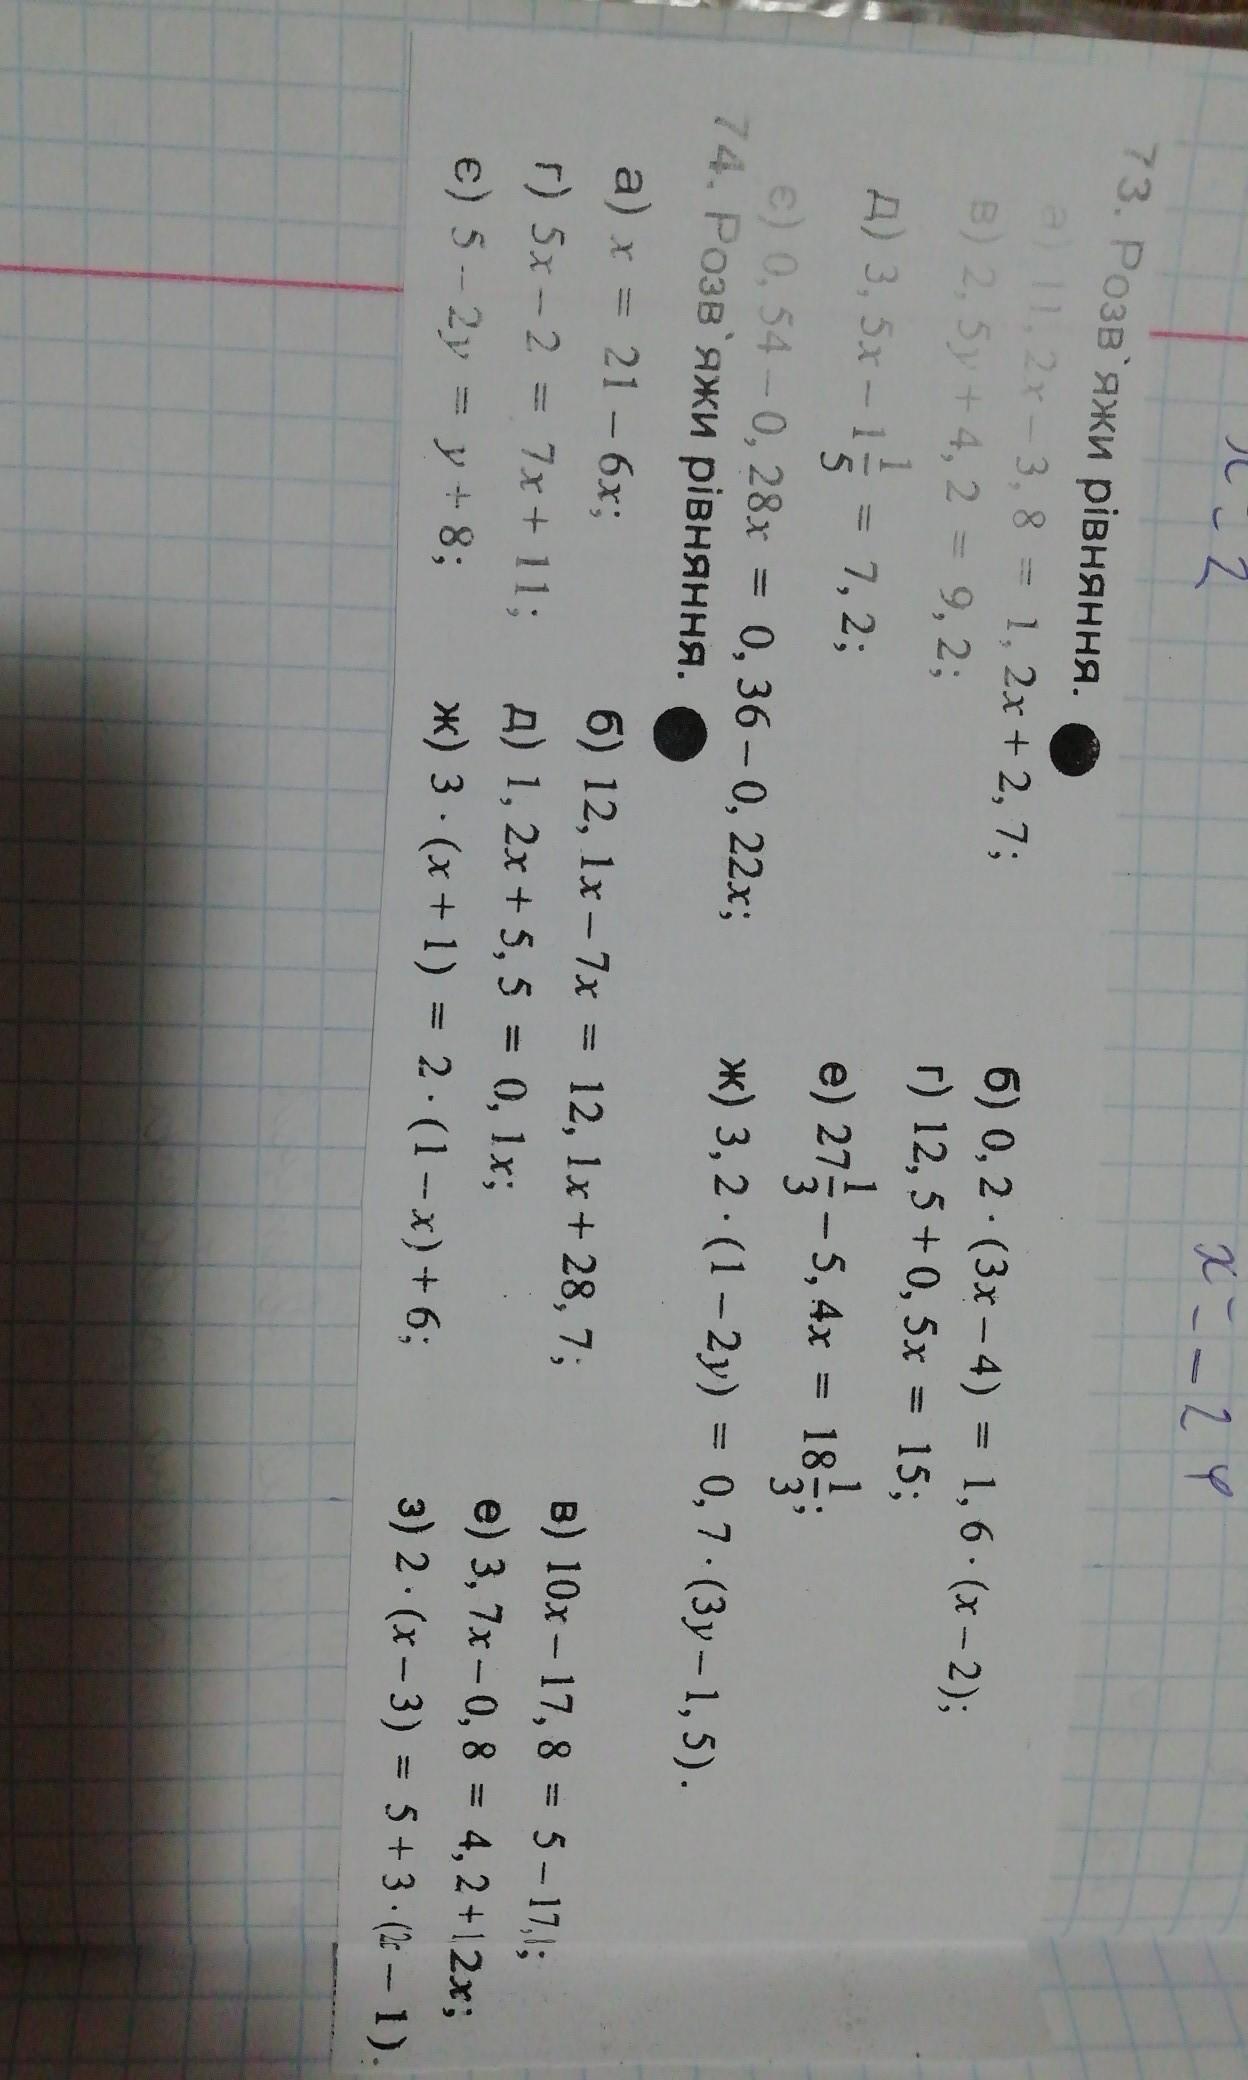 x = 2
x = - 24
73. Розв`яжи рівняння.
а) 11,2x-3,8 = 1,2x+2,7; б) 0,2·(3x-4) = 1,6·(x-2);
в) 2,5y+4,2 = 9,2; г) 12,5+0,5x = 15;
д) 3,5x-1 1/5 = 7,2; е) 27 1/3 -5,4x = 18 1/3;
є) 0,54-0,28x = 0,36-0,22x; ж) 3,2·(1-2y) = 0,7·(3y-1,5).
74. Розв`яжи рівняння.
а) x = 21-6x; б) 12,1x-7x = 12,1x+28,7; в) 10x-17,8 = 5-17,1;
г) 5x-2 = 7x+11; д) 1,2x+5,5 = 0,1x; е) 3,7x-0,8 = 4,2+12x;
є) 5-2y = y+8; ж) 3·(x+1) = 2·(1-x)+6; з) 2·(x-3) = 5+3·(2x-1).